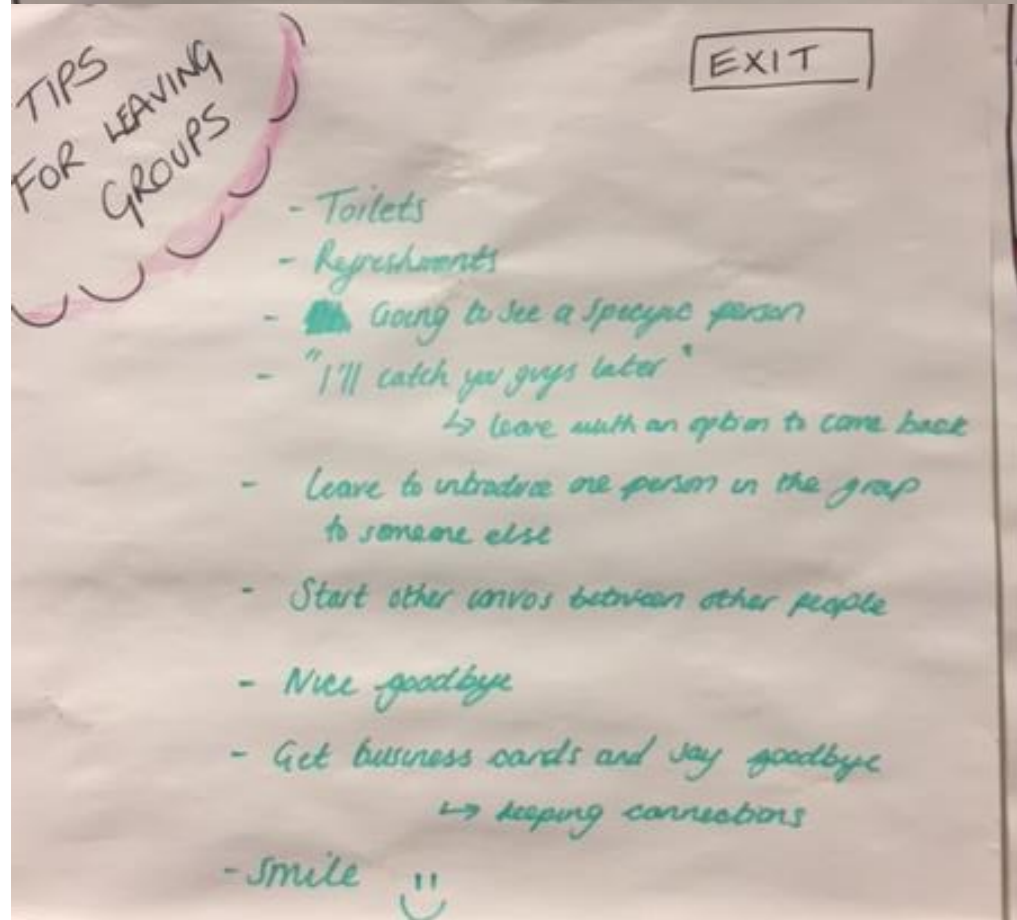 TIPS
FOR LEAVING
GROUPS
EXIT
- Toilets
- Refreshments
- Going to see a specific person
- "I'll catch you guys later"
↳ leave with an option to come back
- Leave to introduce one person in the group
to someone else
- Start other convos between other people
- Nice goodbye
- Get business cards and say goodbye
↳ keeping connections
- Smile